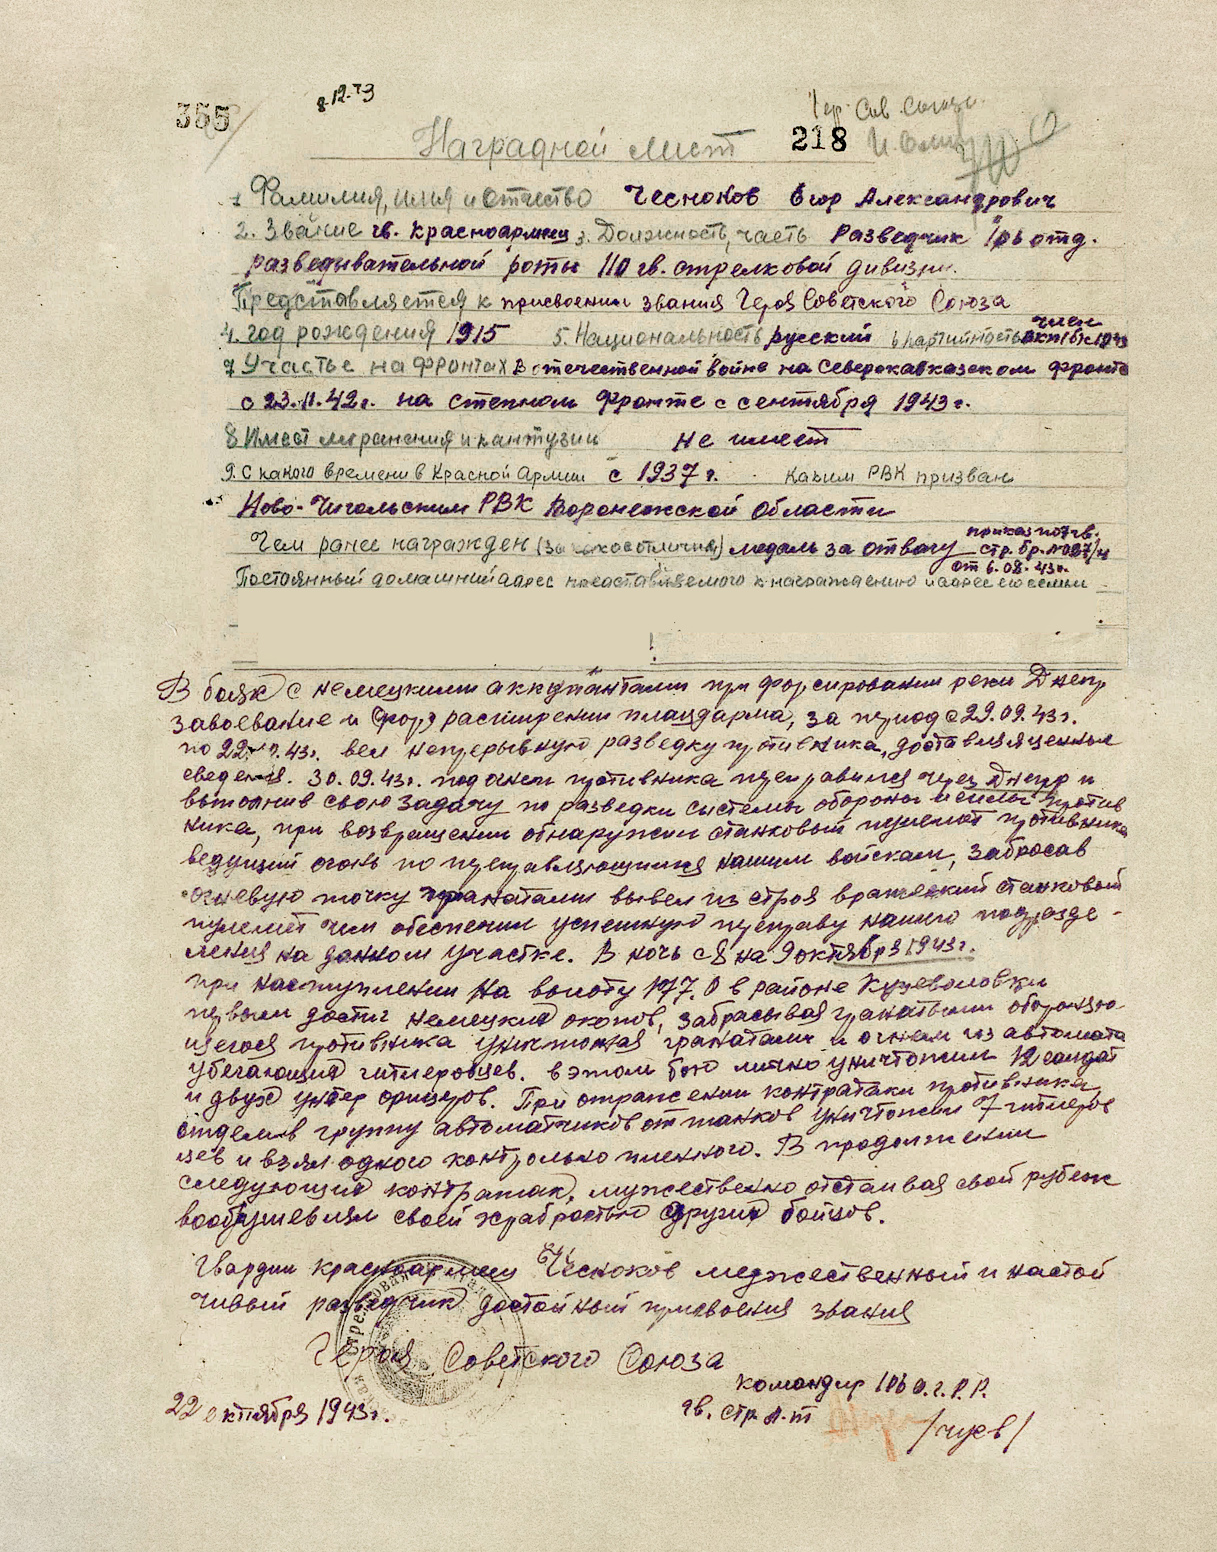 355
8.12.43
Гер. Сов. Союза
Наградной лист 218
1 Фамилия, имя и отчество Чесноков Егор Александрович
2. Звание гв. красноармеец 3. Должность, часть Разведчик 106 отд.
разведывательной роты 110 гв. стрелковой дивизии.
Представляется к присвоению звания Героя Советского Союза
член
4. год рождения 1915 5. Национальность русский 6 партийность ВКП(б) с 1943
7 Участье на фронтах в отечественной войне на Северокавказском фронте
с 23.11.42г. на степном фронте с сентября 1943 г.
8 Имеет ли ранения и контузии не имеет
9. С какого времени в Красной Армии с 1937 г. каким РВК призван
Ново-Чигольским РВК Воронежской области
приказ по 7 гв.
Чем ранее награжден (за какое отличия) медаль за отвагу стр. бр. №027/н
от 6.08.43г.
Постоянный домашний адрес представляемого к награждению и адрес его семьи
В боях с немецкими аккупантами при форсировании реки Днепр
завоевание и расширении плацдарма, за период с 29.09.43г.
по 22. .43г. вел непрерывную разведку противника, доставляя ценные
сведения. 30.09.43г. под огнем противника переправился через Днепр и
выполнив свою задачу по разведки системы обороны и силы против
ника, при возвращении обнаружил станковый пулемет противника
ведущий огонь по переправляющимся нашим войскам, забросав
огневую точку гранатами вывел из строя вражеский станковый
пулемет чем обеспечил успешную переправу нашего подразде-
ления на данном участке. В ночь с 8 на 9 октября 1943г.
при наступлении на высоту 177.0 в районе Куцеволовки
первым достиг немецких окопов, забрасывая гранатами обороняю
щегося противника уничтожая гранатами и огнем из автомата
убегающих гитлеровцев. в этом бою лично уничтожил 12 солдат
и двух унтер офицеров. При отражении контратаки противника
отделив группу автоматчиков от танков уничтожил 7 гитлеров
цев и взял одного контрольно пленного. В продолжении
следующих контратак, мужественно отстаивая свой рубеж
воодушевлял своей храбростью других бойцов.
Гвардии красноармеец Чесноков межественный и настой
чивый разведчик достойный присвоения звания
Героя Советского Союза
командир 106 о.г.р.р.
22 октября 1943г. гв. стр. л-т
/чуев/